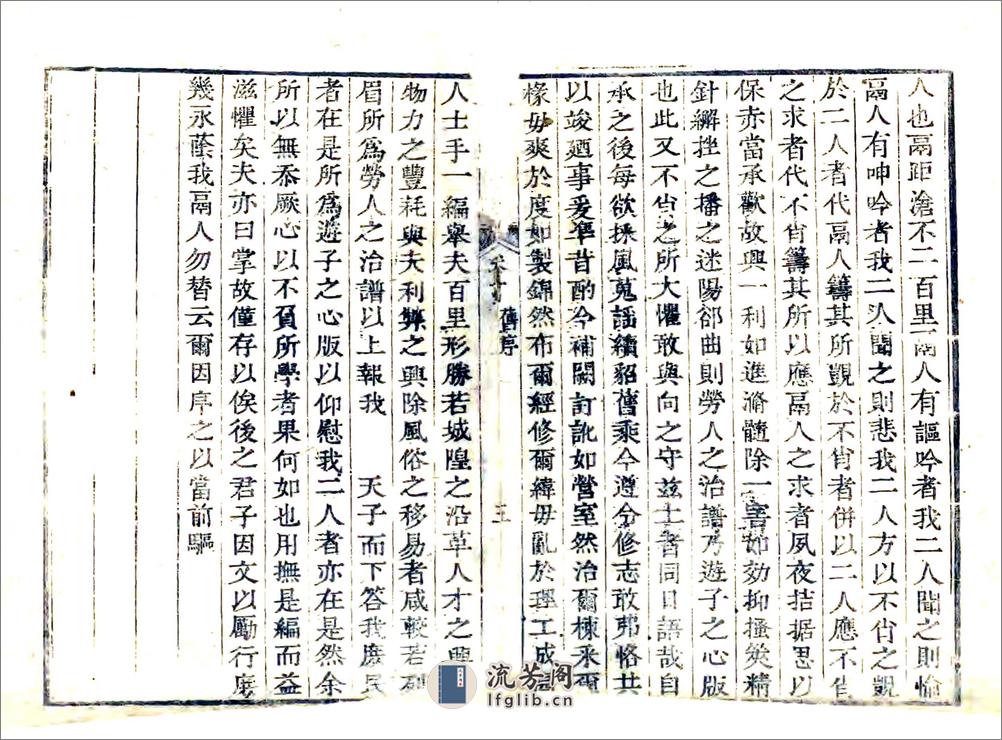 人也鬲距滄不二百里鬲人有謳吟者我二人聞之則愉
鬲人有呻吟者我二人聞之則悲我二人方以不肖之覬
於二人者代鬲人籌其所覬於不肖者併以二人應不肖
之求者代不肖籌其所以應鬲人之求者夙夜拮据思以
保赤當承歡故興一利如進滫髓除一害如効抑搔筴精
針纚挫之播之迷陽郤曲則勞人之治譜乃遊子之心版
也此又不肖之所大懼敢與向之守兹土者同日語哉自
承之後每欲採風蒐謡續貂舊乘今遵今修志敢弗恪共
以竣廼事爰準昔酌今補闕訂訛如營室然治爾棟采爾
椽毋爽於度如製錦然布爾經修爾緯毋亂於理工成
舊序
三
人士手一編舉夫百里形勝若城隍之沿革人才之興
物力之豐耗與夫利弊之興除風俗之移易者咸較若列
眉所爲勞人之治譜以上報我 天子而下答我庶民
者在是所爲遊子之心版以仰慰我二人者亦在是然余
所以無忝厥心以不負所學者果何如也用撫是編而益
滋懼矣夫亦曰掌故僅存以俟後之君子因文以勵行庶
幾永蔭我鬲人勿替云爾因序之以當前驅
流芳閣
lfglib.cn